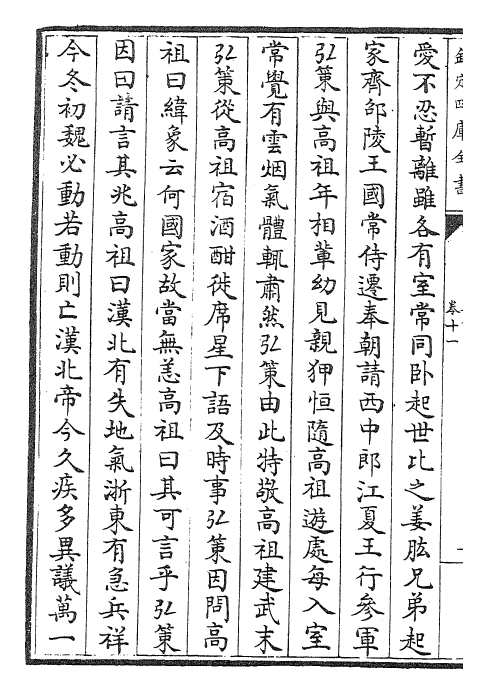 欽定四庫全書
卷十一
愛不忍暫離雖各有室常同卧起世比之姜肱兄弟起
家齊邵陵王國常侍遷奉朝請西中郎江夏王行參軍
弘策與高祖年相輩幼見親狎恒隨高祖遊處每入室
常覺有雲烟氣體輒肅然弘策由此特敬高祖建武末
弘策從高祖宿酒酣徙席星下語及時事弘策因問高
祖曰緯象云何國家故當無恙高祖曰其可言乎弘策
因曰請言其兆高祖曰漢北有失地氣浙東有急兵祥
今冬初魏必動若動則亡漢北帝今久疾多異議萬一